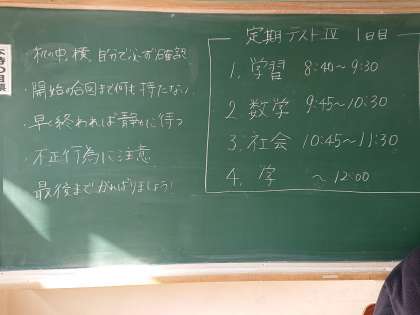 本時の目標
・机の中、横、自分で必ず確認
・開始の合図まで何も持たない
・早く終われば静かに待つ
・不正行為に注意
最後までがんばりましょう!
定期テストⅣ 1日目
1. 学習 8:40～9:30
2. 数学 9:45～10:30
3. 社会 10:45～11:30
4. 学 ～12:00